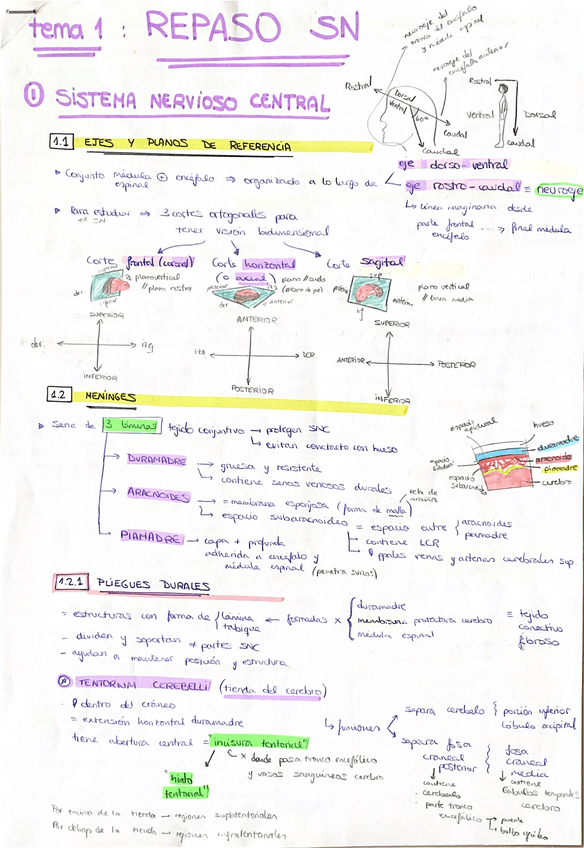 tema 1 : REPASO SN
neuroeje del
tronco del encéfalo
y médula espinal
neuroeje del
encéfalo anterior
Rostral
Dorsal
Ventral
60°
Caudal
Caudal
Rostral
ventral
Dorsal
caudal
① SISTEMA NERVIOSO CENTRAL
1.1 EJES Y PLANOS DE REFERENCIA
▸ Conjunto médula ⊕ encéfalo ⇒ organizado a lo largo de
espinal
eje dorso-ventral
eje rostro-caudal = neuroeje
↳ línea imaginaria desde
parte frontal ---> final médula
encéfalo
▸ Para estudiar ⇒ 3 cortes ortogonales para
el SN
tener visión bidimensional
Corte frontal (coronal)
Corte horizontal
(o axial)
Corte sagital
superior
inferior
der.
plano vertical
// plano rostro
posterior
anterior
sup
inf
plano vertical
// línea media
SUPERIOR
der.
izq
INFERIOR
ANTERIOR
izq
DER.
POSTERIOR
SUPERIOR
ANTERIOR
POSTERIOR
INFERIOR
1.2 MENINGES
▸ Serie de 3 láminas tejido conjuntivo → protegen SNC
↳ evitan contacto con hueso
DURAMADRE → gruesa y resistente
↳ contiene senos venosos durales
ARACNOIDES → = membrana esponjosa (forma de malla)
tela de
araña
↳ espacio subaracnoideo = espacio entre { aracnoides
piamadre
contiene LCR
ppales venas y arterias cerebrales sup
PIAMADRE → capa + profunda
adherida a encéfalo y
médula espinal (penetra surcos)
espacio
epidural
hueso
duramadre
aracnoide
piamadre
cerebro
espacio
subdural
espacio
1.2.1 PLIEGUES DURALES
= estructuras con forma de { lámina ← formadas x { duramadre
tabique
membrana protectora cerebro
médula espinal
= tejido
conectivo
fibroso
- dividen y soportan ≠ partes SNC
- ayudan a mantener posición y estructura
Ⓐ TENTORIUM CEREBELLI (tienda del cerebro)
dentro del cráneo
= extensión horizontal duramadre
tiene abertura central = "incisura tentorial"
"hiato
tentorial"
x donde pasa tronco encefálico
y vasos sanguíneos cerebro
↳ funciones
separa cerebelo { porción inferior
lóbulo occipital
separa fosa
craneal
posterior
fosa
craneal
media
contiene
- cerebelo
- parte tronco
encefálico → puente
bulbo raquídeo
contiene
lóbulos temporales
cerebro
Por encima de la tienda → regiones supratentoriales
Por debajo de la tienda → regiones infratentoriales